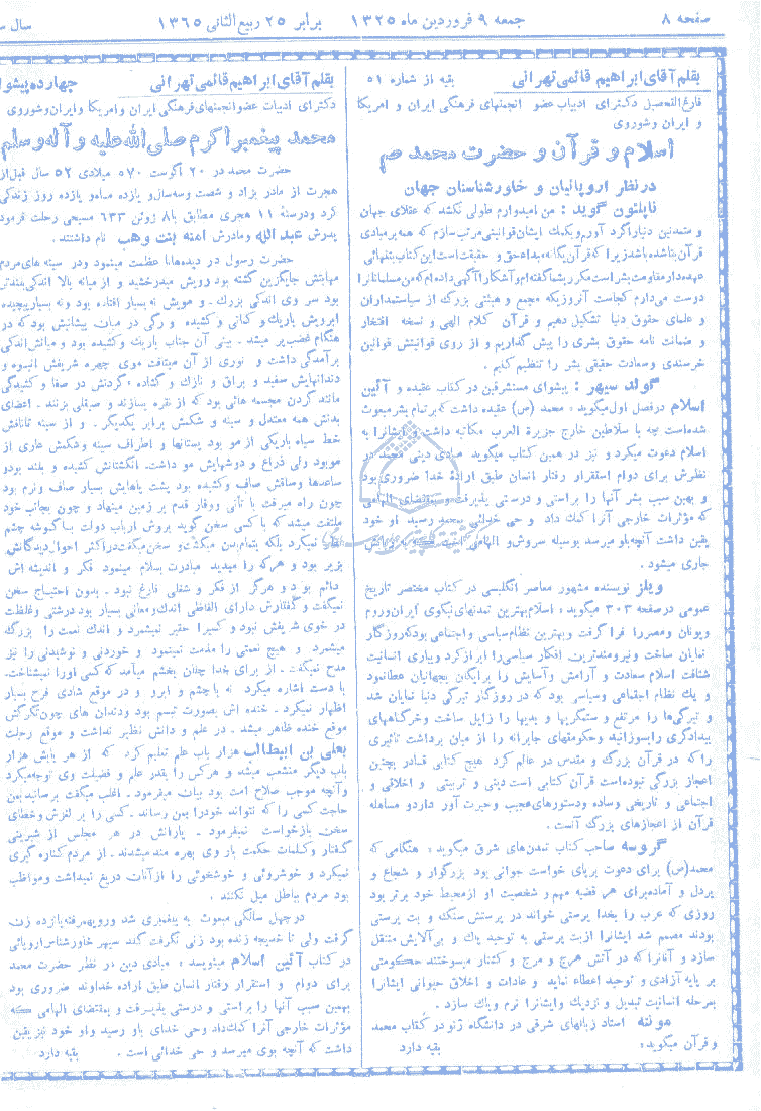 صفحه ۸ جمعه ۹ فروردین ماه ۱۳۲۵ برابر ۲۵ ربیع الثانی ۱۳۶۵ سال
بقلم آقای ابراهیم قائمی تهرانی بقیه از شماره ۵۱
فارغ التحصیل دکترای ادبیات عضو انجمنهای فرهنگی ایران و امریکا
و ایران وشوروی
اسلام و قرآن و حضرت محمد ص
در نظر اروپائیان و خاورشناسان جهان
ناپلئون گوید : من امیدوارم طولی نکشد که عقلای جهان
و متمدنین دنیا را گرد آورم و بکمک ایشان قوانینی مرتب سازم که همه بر مبادی
قرآن بنا شده باشد زیرا که قرآن یگانه مبداء حق و حقیقت است این کتاب بتنهائی
عهده دار سعادت بشر است مکرر بشما گفته ام و آشکارا آگهی داده ام که من مسلمانانرا
دوست می‌دارم کجاست آنروزیکه مجمع و هیئتی بزرگ از سیاستمداران
و علمای حقوق دنیا تشکیل دهیم و قرآن کلام الهی و نسخه افتخار
و ضمانت نامه حقوق بشری را پیش گذاریم و از روی قوانینش قوانین
خرسندی وسعادت حقیقی بشر را تنظیم کنیم .
گولد سیهر : پیشوای مستشرقین در کتاب عقیده و آئین
اسلام در فصل اول میگوید : محمد (ص) عقیده داشت که بر تمام بشر مبعوث
شده است چه با سلاطین خارج جزیرة العرب مکاتبه داشت و ایشانرا به
اسلام دعوت میکرد و نیز در همین کتاب میگوید مبادی دینی محمد در
نظرش برای دوام استقرار رفتار انسان طبق ارادۀ خدا ضروری بود
و بهمین سبب بشر آنها را براستی و درستی پذیرفت و بمقتضای الهامی
که مؤثرات خارجی آنرا کمک داد و حی خدائی بمحمد رسید او خود
یقین داشت آنچه باو میرسد بوسیله سروش و الهامی است که بر زبانش
جاری میشود .
ویلز نویسنده مشهور معاصر انگلیسی در کتاب مختصر تاریخ
عمومی در صفحه ۳۰۳ میگوید : اسلام بهترین تمدنهای نیکوی ایران وروم
ویونان ومصر را فرا گرفت و بهترین نظام سیاسی و اجتماعی بود که روزگار
نمایان ساخت و نیرومندترین افکار سیاسی را ابراز کرد و بیاری انسانیت
شتافت اسلام سعادت و آرامش و آسایش را برایگان بجهانیان عطا نمود
و یک نظام اجتماعی وسیاسی بود که در روزگار تیرگی دنیا نمایان شد
و تیرگی‌ها را مرتفع و ستمگریها و بدیها را زایل ساخت وخرگاههای
بیدادگری را بسوزانید و حکومتهای جابرانه را از میان برداشت تاثیری
را که در قرآن بزرگ و مقدس در عالم کرد هیچ کتابی قادر بچنین
اعجاز بزرگی نبوده است قرآن کتابی است دینی و تربیتی و اخلاقی و
اجتماعی و تاریخی وساده ودستورهای عجیب وحیرت آور دارد و مسامله
قرآن از اعجازهای بزرگ آنست .
گروسه صاحب کتاب تمدن‌های شرق میگوید : هنگامی که
محمد(ص) برای دعوت برپای خواست جوانی بود بزرگوار و شجاع و
پردل و آماده برای هر قضیه مهم و شخصیت او از محیط خود برتر بود
روزی که عرب را بخدا پرستی خواند در پرستش سنگ و بت پرستی
بودند مصمم شد ایشانرا از بت پرستی به توحید پاک و بی‌آلایش منتقل
سازد و آنانرا که در آتش هرج و مرج و کشتار میسوختند حکومتی
بر پایه آزادی و توحید اعطاء نماید و عادات و اخلاق حیوانی ایشانرا
بمرحله انسانیت تبدیل و نزدیک وایشانرا نرم وپاک سازد .
مونته استاد زبانهای شرقی در دانشگاه ژنو در کتاب محمد
و قرآن میگوید : بقیه دارد
بقلم آقای ابراهیم قائمی تهرانی چهارده پیشوا
دکترای ادبیات عضو انجمنهای فرهنگی ایران وامریکا وایران وشوروی
محمد پیغمبر اکرم صلی الله علیه و آله و سلم
حضرت محمد در ۲۰ اگوست ۵۷۰ میلادی ۵۲ سال قبل از
هجرت از مادر بزاد و شصت وسه سال و یازده ماه و یازده روز زندگی
کرد ودر سنۀ ۱۱ هجری مطابق با ۸ ژوئن ۶۳۳ مسیحی رحلت فرمود
پدرش عبدالله ومادرش آمنه بنت وهب نام داشتند .
حضرت رسول در دیده‌ها با عظمت مینمود ودر سینه های مردم
مهابتش جایگزین گشته بود رویش میدرخشید و از میانه بالا اندکی بلندتر
بود سر وی اندکی بزرگ . و مویش نه بسیار افتاده بود ونه بسیار پیچیده
ابرویش باریک و کمانی و کشیده و رگی در میان پیشانیش بود که در
هنگام غضب پر میشد . بینی آن جناب باریک وکشیده بود و میانش اندکی
برآمدگی داشت و نوری از آن میتافت موی چهره شریفش انبوه و
دندانهایش سفید و براق و نازک و گشاده ، گردنش در صفا و کشیدگی
مانند گردن مجسمه هائی بود که از نقره بسازند و صیقلی بزنند . اعضای
بدنش همه معتدل و سینه و شکمش برابر یکدیگر . و از سینه تا نافش
خط سیاه باریکی از مو بود پستانها و اطراف سینه وشکمش عاری از
مو بود ولی ذراع و دوشهایش مو داشت. انگشتانش کشیده و بلند بود و
ساعدها وساقش صاف وکشیده بود پشت پاهایش بسیار صاف ونرم بود
چون راه میرفت با تأنی ووقار قدم بر زمین مینهاد و چون بجانب خود
ملتفت میشد که با کسی سخن گوید بروش ارباب دولت بگوشه چشم
نظر نمیکرد بلکه بتمام بدن میگشت و سخن میگفت در اکثر احوال دیدگانش
بزیر بود و هر که را میدید مبادرت بسلام مینمود فکر و اندیشه اش
دائم بود و هرگز از فکر و شغلی فارغ نبود . بدون احتیاج سخن
نمیگفت و گفتارش دارای الفاظی اندک ومعانی بسیار بود درشتی وغلظت
در خوی شریفش نبود و کسیرا حقیر نمیشمرد و اندک نعمت را بزرگ
میشمرد و هیچ نعمتی را مذمت نمینمود و خوردنی و نوشیدنی را نیز
مدح نمیگفت . از برای خدا چنان بخشم میآمد که کسی اورا نمیشناخت.
با دست اشاره میکرد نه با چشم و ابرو و در موقع شادی فرح بسیار
اظهار نمیکرد . خنده اش بصورت تبسم بود ودندان های چون تگرگش
موقع خنده ظاهر میشد . در علم و دانش نظیر نداشت و موقع رحلت
بعلی بن ابیطالب هزار باب علم تعلیم کرد که از هر بابش هزار
باب دیگر منشعب میشد و هرکس را بقدر علم و فضیلت وی توجه میکرد
وآنچه موجب صلاح امت بود بیان میفرمود . اغلب میگفت برسانید بمن
حاجت کسی را که نتواند خود را بمن رساند . کسی را بر لغزش وخطای
سخن بازخواست نمیفرمود . یارانش در هر مجلس از شیرینی
گفتار وکلمات حکمت بار وی بهره مند میشدند . از مردم کناره گیری
نمیکرد و خوشروئی و خوشخوئی را از آنان دریغ نمیداشت ومواظب
بود مردم بباطل میل نکنند .
در چهل سالگی مبعوث به پیغمبری شد ورویهمرفته پانزده زن
گرفت ولی تا خدیجه زنده بود زنی نگرفت گلد سیهر خاورشناس اروپائی
در کتاب آئین اسلام مینویسد : مبادی دین در نظر حضرت محمد
برای دوام و استقرار رفتار انسان طبق اراده خداوند ضروری بود
بهمین سبب آنها را براستی و درستی پذیرفت و بمقتضای الهامی که
مؤثرات خارجی آنرا کمک داد وحی خدای باو رسید واو خود نیز یقین
داشت که آنچه بوی میرسد و حی خدائی است . بقیه دارد